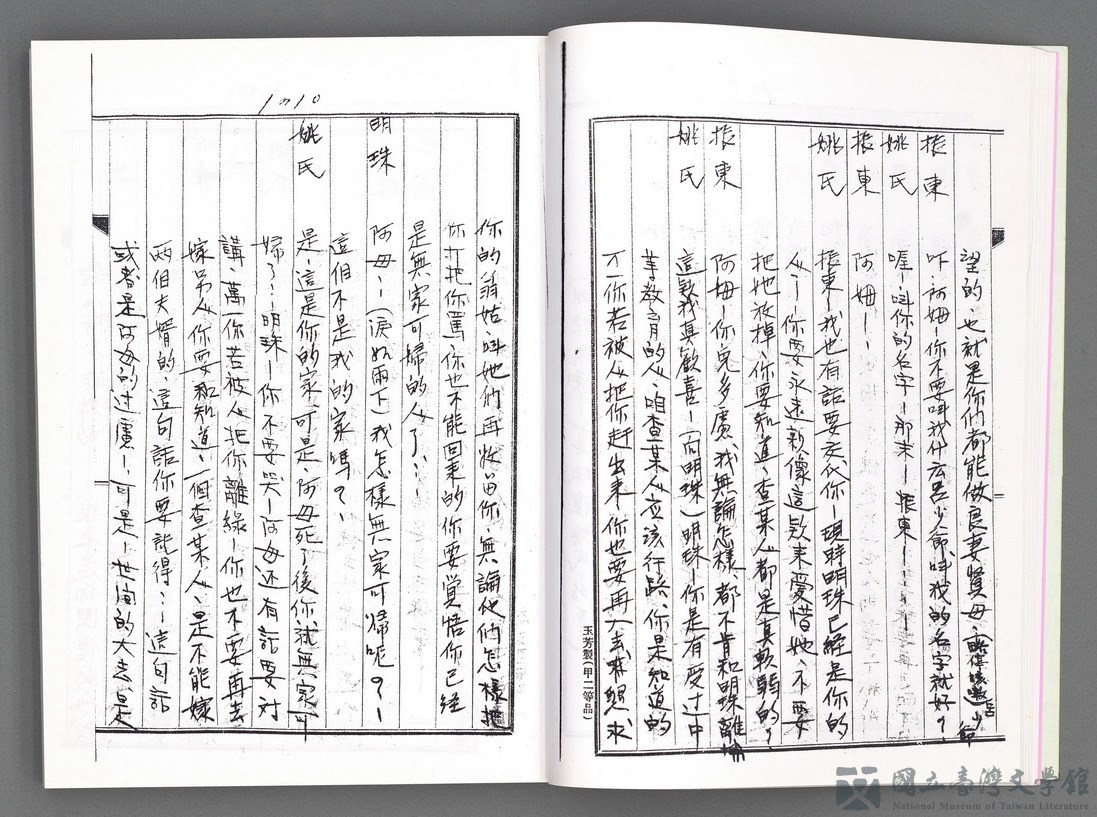 望的、也就是你们都能做良妻賢母、
振東 吓、阿姆ー你不要叫我什么呂少爺、叫我的名字就好？、
姚氏 喔ー叫你的名字ー那末ー振東ー
振東 阿姆ー
姚氏 振東ー我也有話要交代你ー現時明珠已經是你的
人ー你要永遠新像這款来愛惜她、不要
把她放掉、你要知道、查某人都是真軟弱的、
振東 阿姆ー你免多慮、我無論怎樣、都不肯和明珠離
姚氏 這款我真歡喜ー（向明珠）明珠ー你是有受过中
等教育的人、咱查某人应该行路、你是知道的
万一你若被人把你赶出来、你也要再入去哀愿求
玉芳製（甲二等品）
1010
你的翁姑叫她们再收留你、無論他们怎樣把
你打把你罵、你也不能回来的、你要覚悟你已経
是無家可歸的人了、
明珠 阿母ー（淚如雨下）我怎樣無家可歸呢？ー
這個不是我的家嗎？、
姚氏 是、這是你的家、可是、阿母死了後、你就無家可
歸了、明珠ー你不要哭ー阿母还有話要对
講、萬一你若被人把你離緣ー你也不要再去
嫁另人、你要知道、一個查某人、是不能嫁
兩個夫婿的、這句話你要記得、這句話
或者是阿母的过慮ー可是ー世間的大志、是
國立臺灣文學館
National Museum of Taiwan Literature